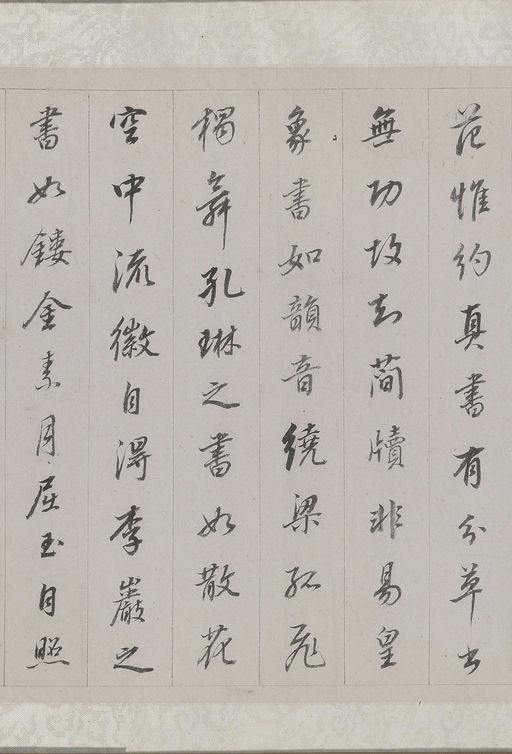 范惟約真書有分草書
無功故知簡牘非易皇
象書如韻音繞梁孤飛
獨舞孔琳之書如散花
空中流徽自得李巖之
書如鏤金素月屈玉自照